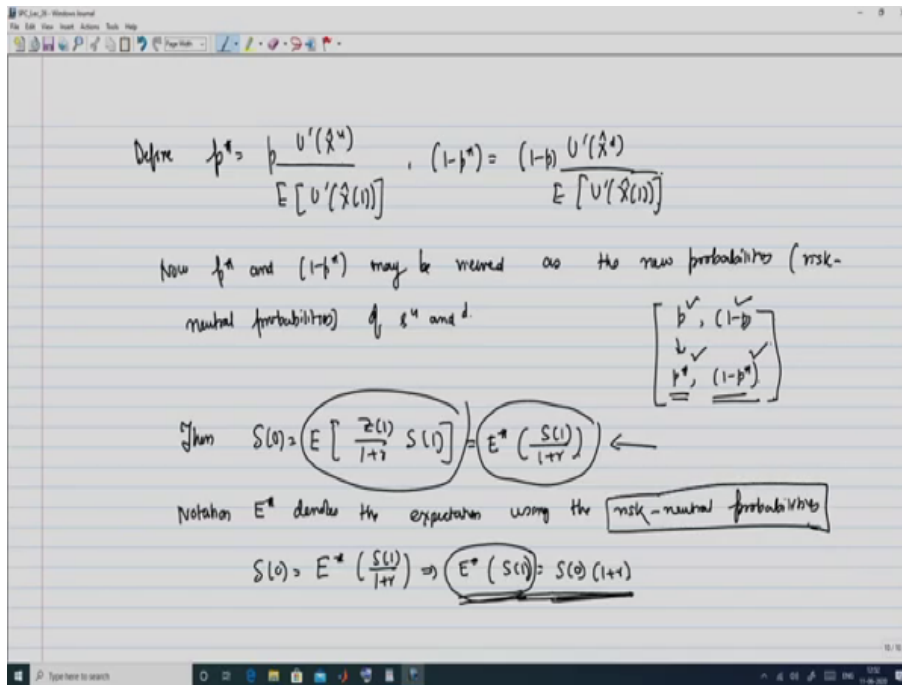 IPC_Lec_26 - Windows Journal
File Edit View Insert Actions Tools Help
Page Width
Define p* = p U'(X̂ᵘ) / E[U'(X̂(1))] , (1-p*) = (1-p) U'(X̂ᵈ) / E[U'(X̂(1))]
Now p* and (1-p*) may be viewed as the new probabilities (risk-
neutral probabilities) of sᵘ and d.
p, (1-p)
↓
p*, (1-p*)
Then S(0) = E[ Z(1)/1+r S(1) ] = E* ( S(1)/1+r ) ←
Notation E* denotes the expectation using the risk-neutral probabilities
S(0) = E* ( S(1)/1+r ) ⇒ E* ( S(1) ) = S(0) (1+r)
10 / 10
Type here to search
ENG
11-06-2020